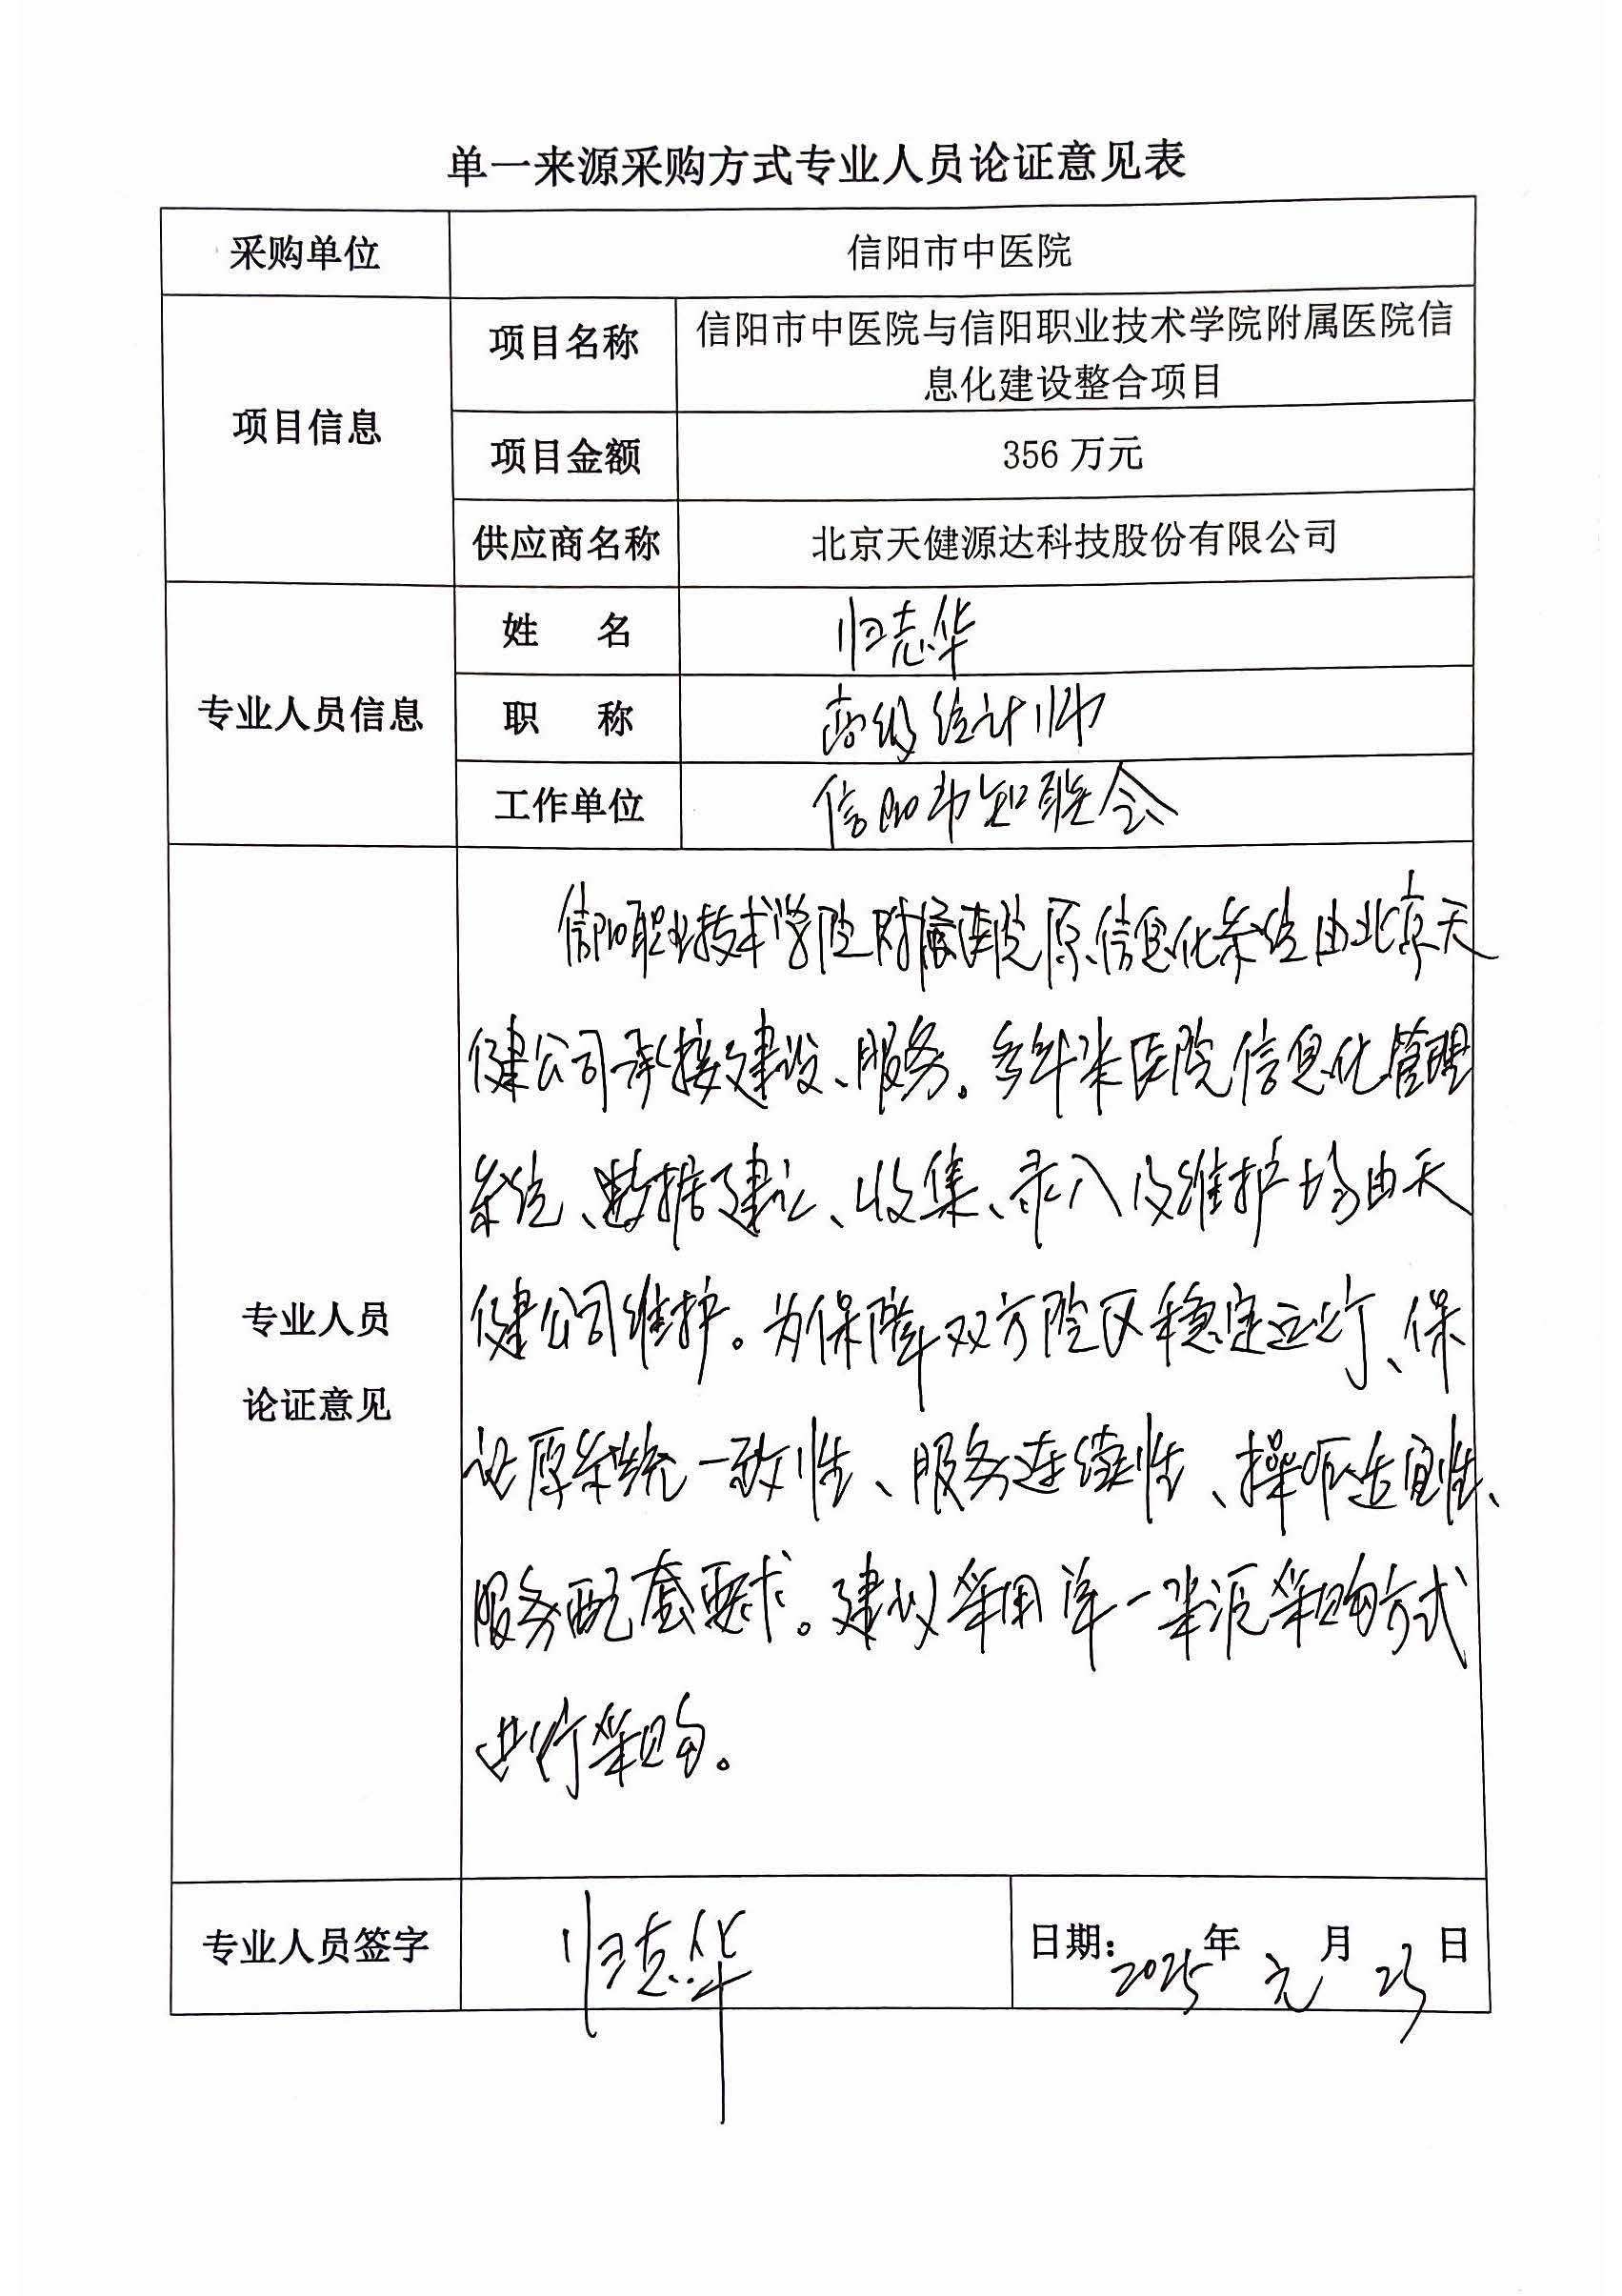 单一来源采购方式专业人员论证意见表
采购单位 信阳市中医院
项目信息
项目名称 信阳市中医院与信阳职业技术学院附属医院信
息化建设整合项目
项目金额 356 万元
供应商名称 北京天健源达科技股份有限公司
专业人员信息
姓 名 归志华
职 称 高级统计师
工作单位 信阳市知联会
专业人员
论证意见
信阳职业技术学院附属医院原信息化系统由北京天
健公司承接建设、服务。多年来医院信息化管理
系统、数据建立、收集、录入及维护均由天
健公司维护。为保障双方院区稳定运行、保
证原系统一致性、服务连续性、操作适宜性、
服务配套要求。建议采用单一来源采购方式
进行采购。
专业人员签字 归志华 日期: 2025 年 元 月 23 日